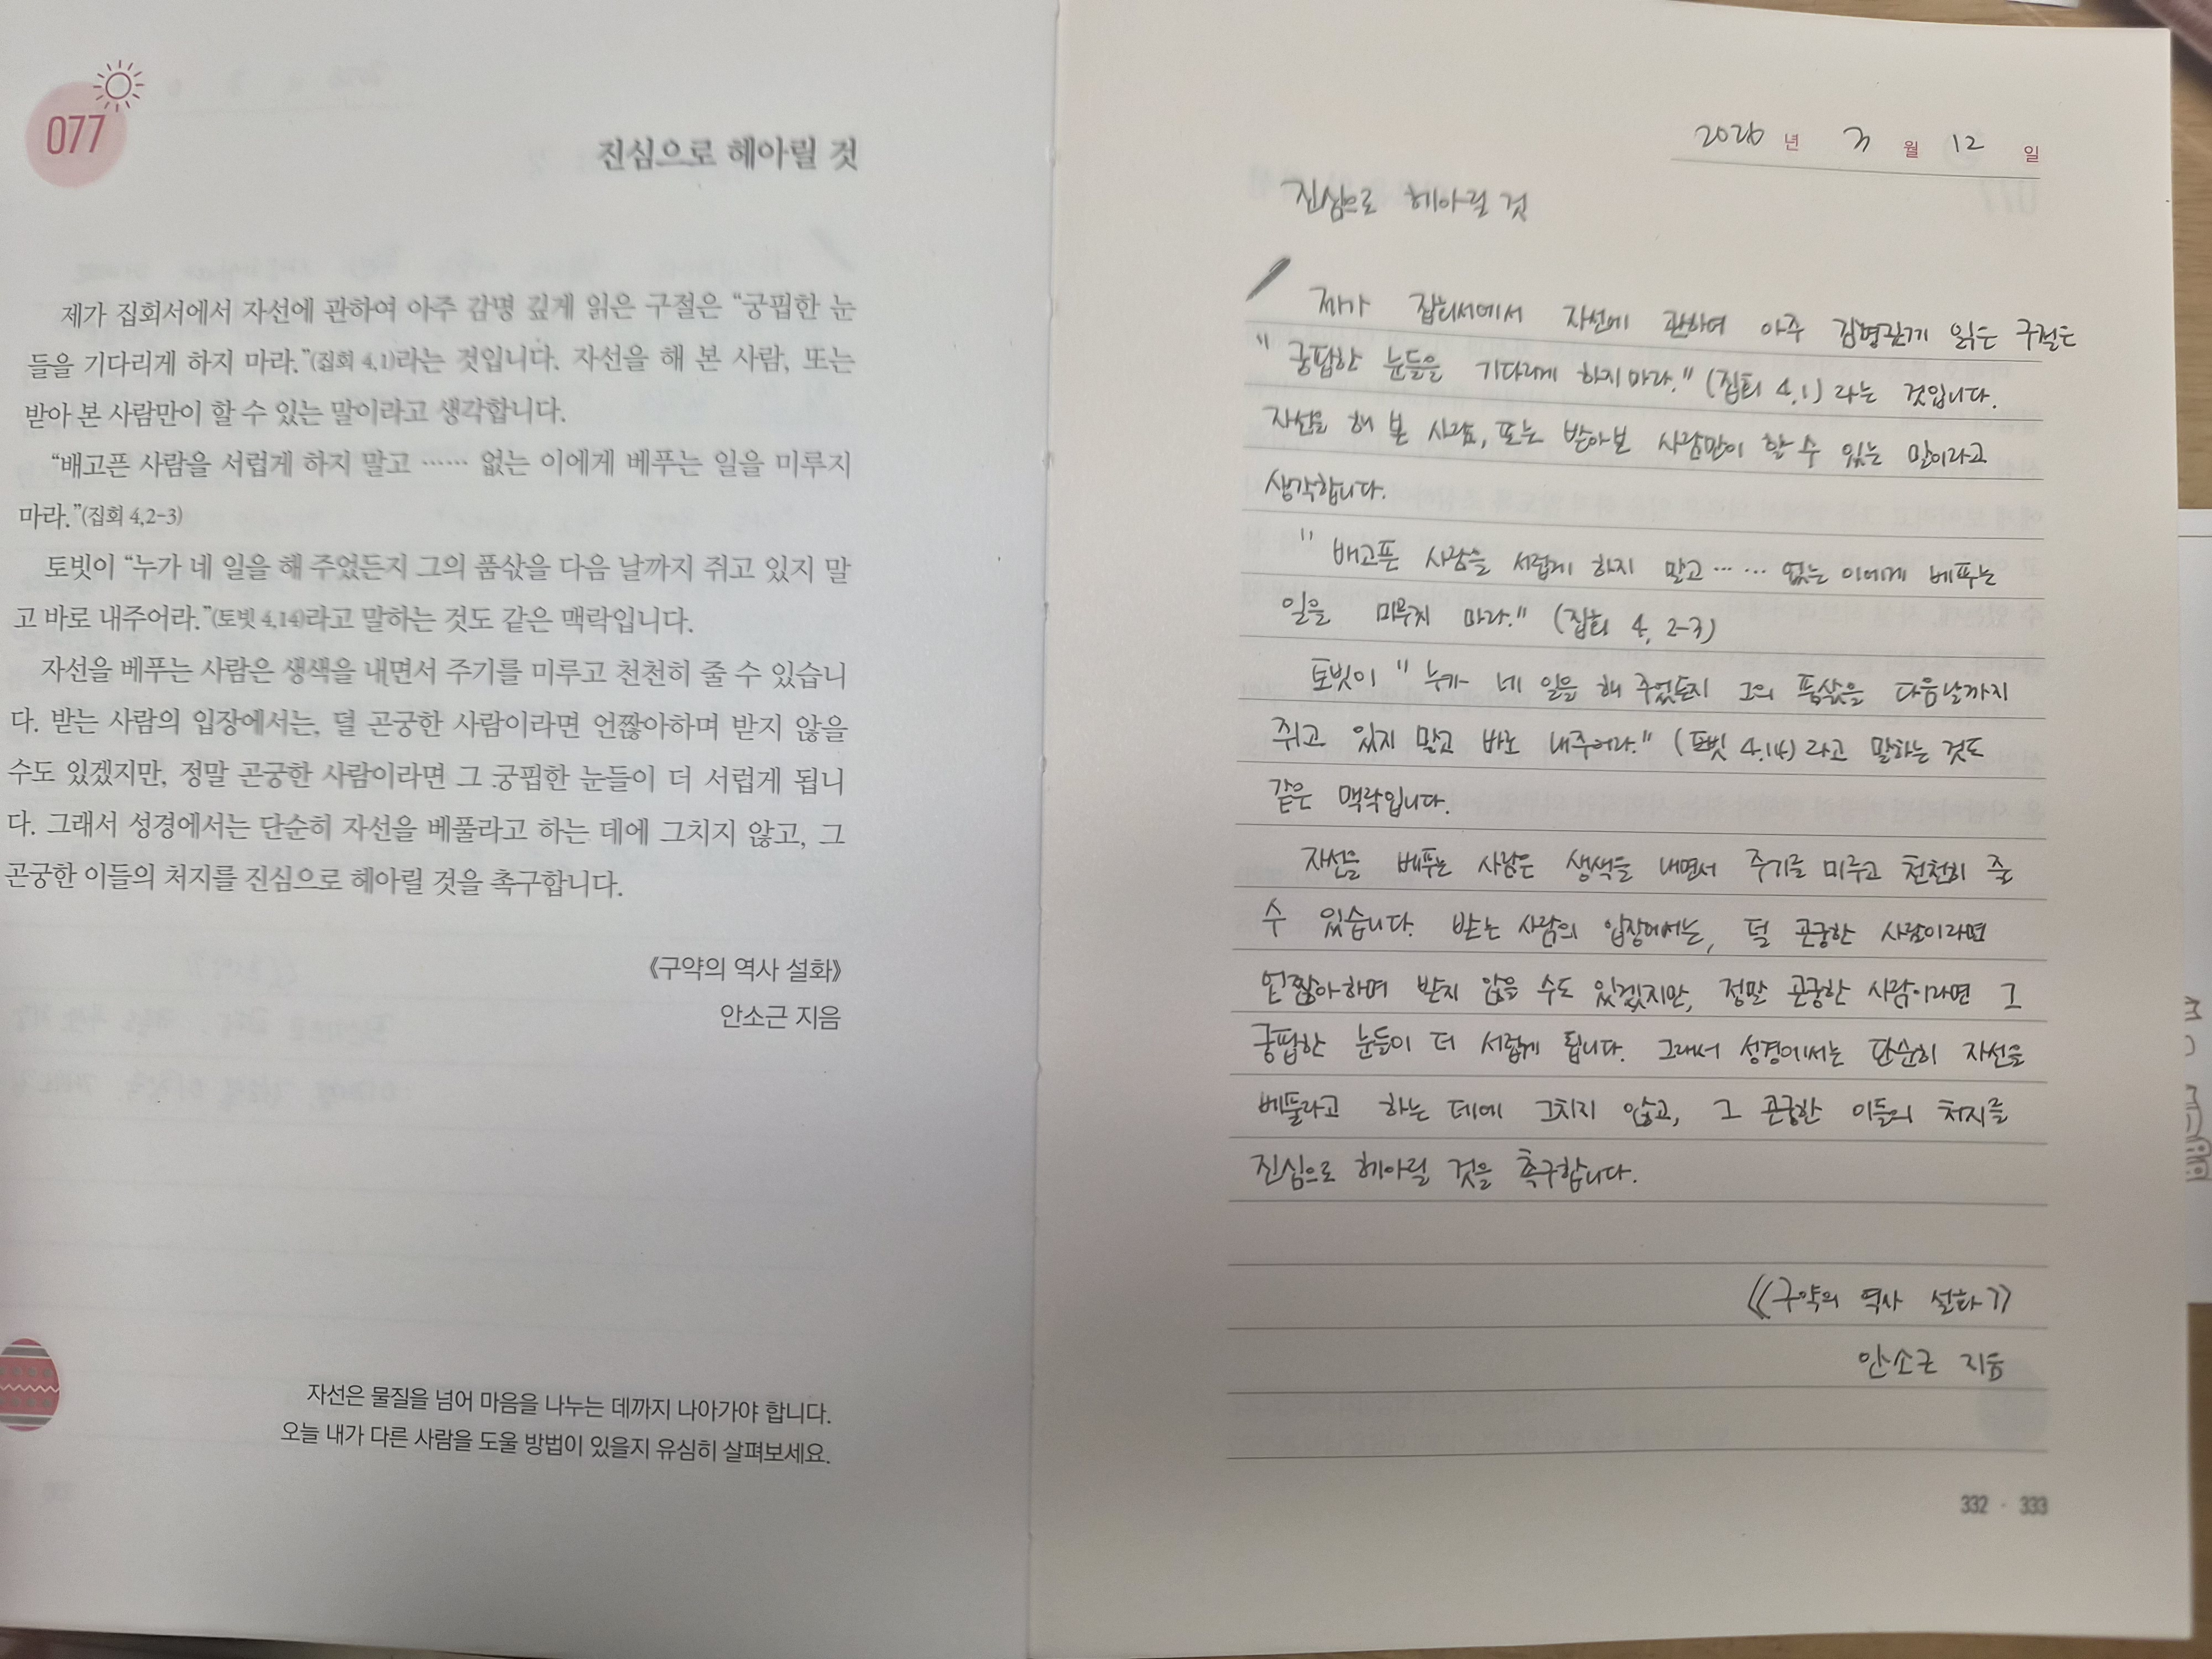 077
진심으로 헤아릴 것
제가 집회서에서 자선에 관하여 아주 감명 깊게 읽은 구절은 “궁핍한 눈
들을 기다리게 하지 마라.”(집회 4,1)라는 것입니다. 자선을 해 본 사람, 또는
받아 본 사람만이 할 수 있는 말이라고 생각합니다.
“배고픈 사람을 서럽게 하지 말고 …… 없는 이에게 베푸는 일을 미루지
마라.”(집회 4,2-3)
토빗이 “누가 네 일을 해 주었든지 그의 품삯을 다음 날까지 쥐고 있지 말
고 바로 내주어라.”(토빗 4,14)라고 말하는 것도 같은 맥락입니다.
자선을 베푸는 사람은 생색을 내면서 주기를 미루고 천천히 줄 수 있습니
다. 받는 사람의 입장에서는, 덜 곤궁한 사람이라면 언짢아하며 받지 않을
수도 있겠지만, 정말 곤궁한 사람이라면 그 궁핍한 눈들이 더 서럽게 됩니
다. 그래서 성경에서는 단순히 자선을 베풀라고 하는 데에 그치지 않고, 그
곤궁한 이들의 처지를 진심으로 헤아릴 것을 촉구합니다.
《구약의 역사 설화》
안소근 지음
자선은 물질을 넘어 마음을 나누는 데까지 나아가야 합니다.
오늘 내가 다른 사람을 도울 방법이 있을지 유심히 살펴보세요.
2026 년 3 월 12 일
진심으로 헤아릴 것
제가 집회서에서 자선에 관하여 아주 감명깊게 읽은 구절은
" 궁핍한 눈들을 기다리게 하지 마라." (집회 4,1) 라는 것입니다.
자선을 해 본 사람, 또는 받아본 사람만이 할 수 있는 말이라고
생각합니다.
" 배고픈 사람을 서럽게 하지 말고 …… 없는 이에게 베푸는
일을 미루지 마라." (집회 4, 2-3)
토빗이 " 누가 네 일을 해 주었든지 그의 품삯을 다음날까지
쥐고 있지 말고 바로 내주어라." (토빗 4,14) 라고 말하는 것도
같은 맥락입니다.
자선을 베푸는 사람은 생색을 내면서 주기를 미루고 천천히 줄
수 있습니다. 받는 사람의 입장에서는, 덜 곤궁한 사람이라면
언짢아하며 받지 않을 수도 있겠지만, 정말 곤궁한 사람이라면 그
궁핍한 눈들이 더 서럽게 됩니다. 그래서 성경에서는 단순히 자선을
베풀라고 하는 데에 그치지 않고, 그 곤궁한 이들의 처지를
진심으로 헤아릴 것을 촉구합니다.
《구약의 역사 설화》
안소근 지음
332 · 333